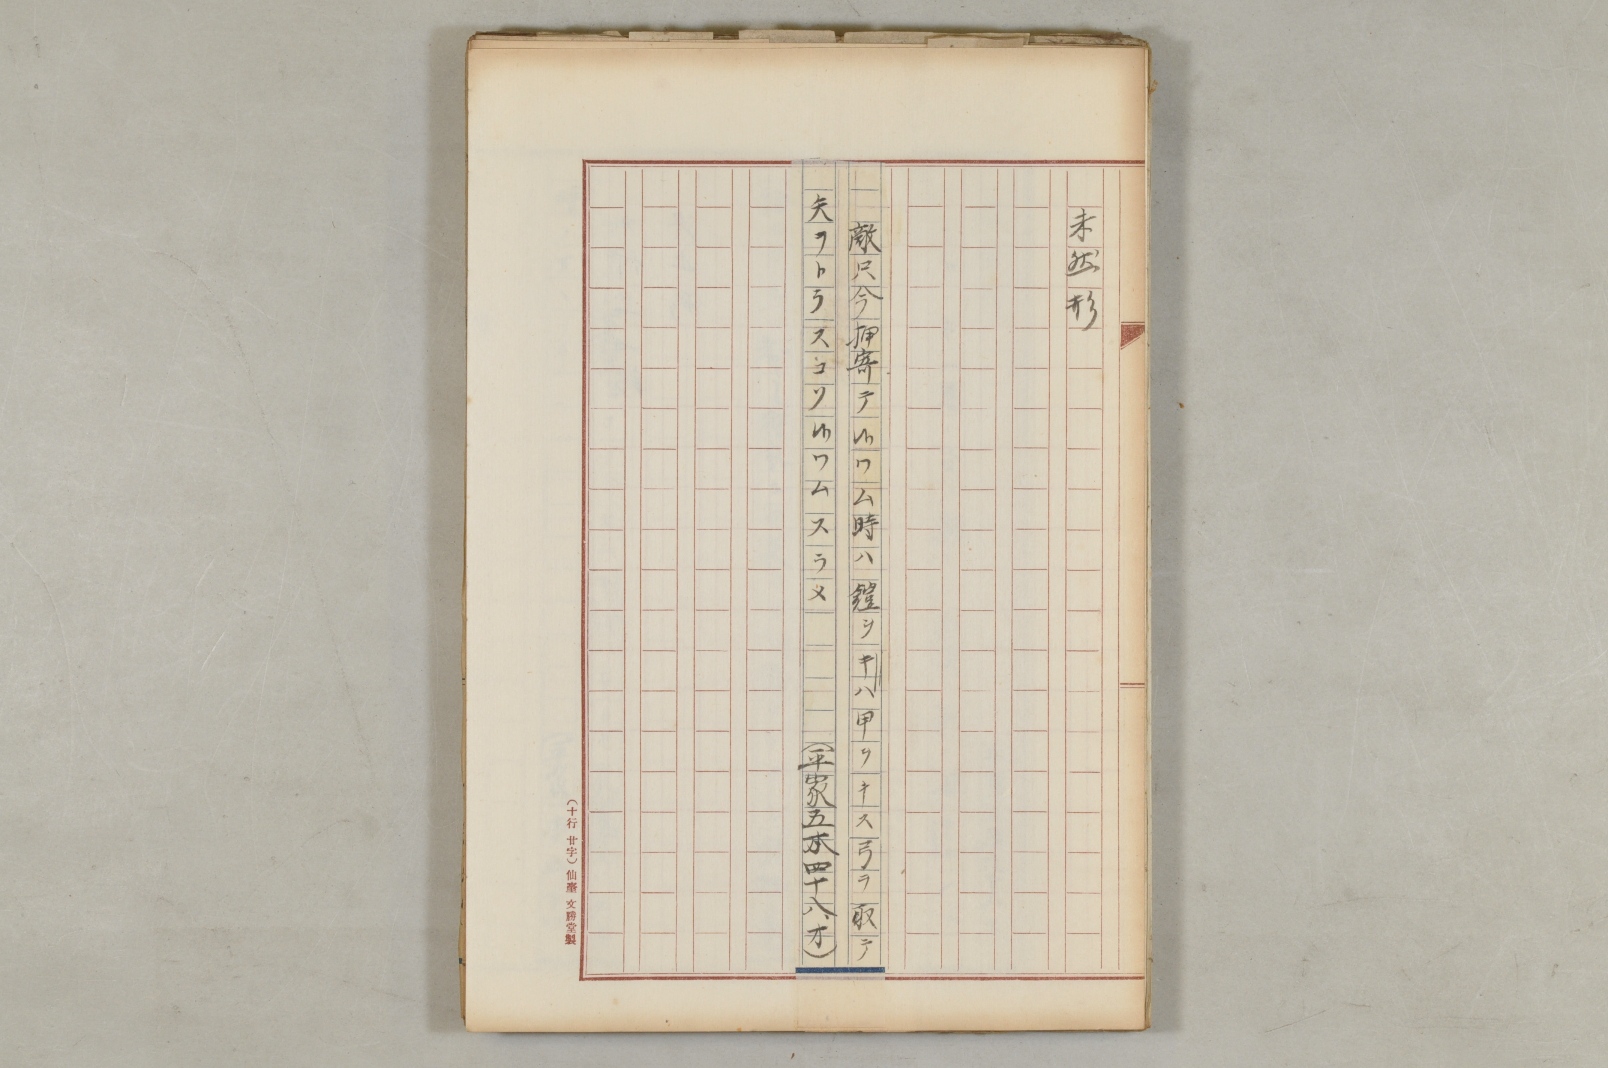 未然形
敵只今押寄テ候ワム時ハ鎧ヲキハ甲ヲキス弓ヲ取テ
矢ヲトラスコソ候ワムスラメ (平家五本四十八、オ)
(十行 廿字) 仙臺 文勝堂製